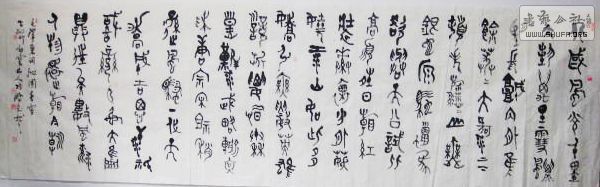 北国風光千里
冰封万里雪飄
望長城内外惟
余莽莽大河上下
頓失滔滔山舞
銀蛇原馳蠟象
欲與天公試比
高須晴日看紅
裝素裹分外妖
嬈江山如此多
嬌引無數英雄
競折腰惜秦
皇漢武略輸文
采唐宗宋祖稍
遜風騷一代天
驕成吉思汗只識
彎弓射大雕
俱往矣數風流
人物還看今朝
WWW.SHUFA.ORG